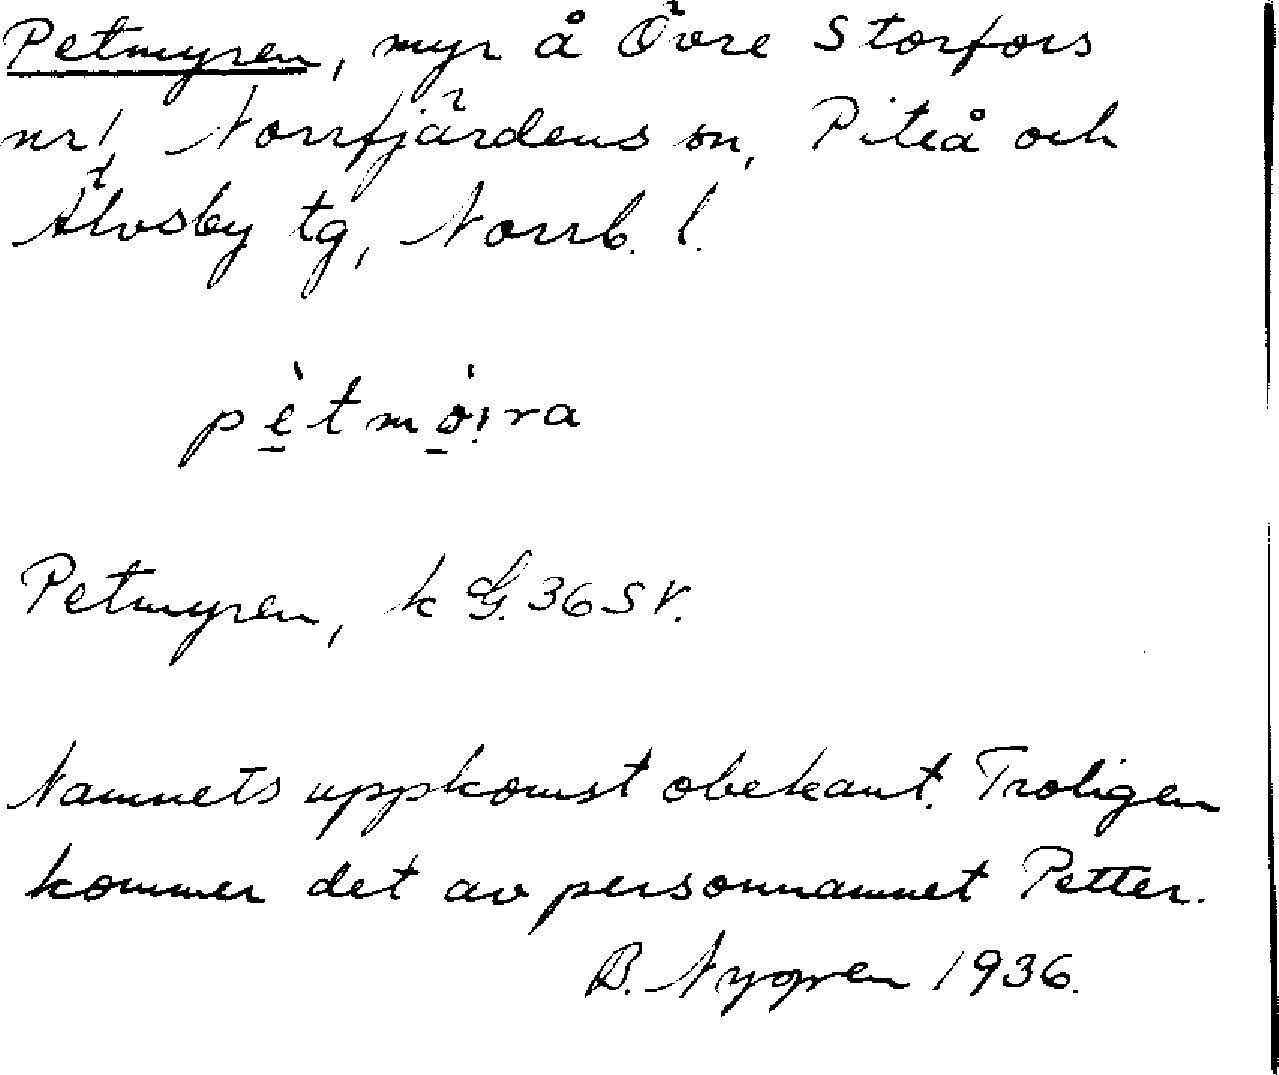 Petmyren, myr å Övre Storfors
nr 1, Norrfjärdens sn, Piteå och
Älvsby tg, Norrb. l.
pètmòira
Petmyren, k G. 36 SV.
Namnets uppkomst obekant. Troligen
kommer det av personnamnet Petter.
B. Nygren 1936.